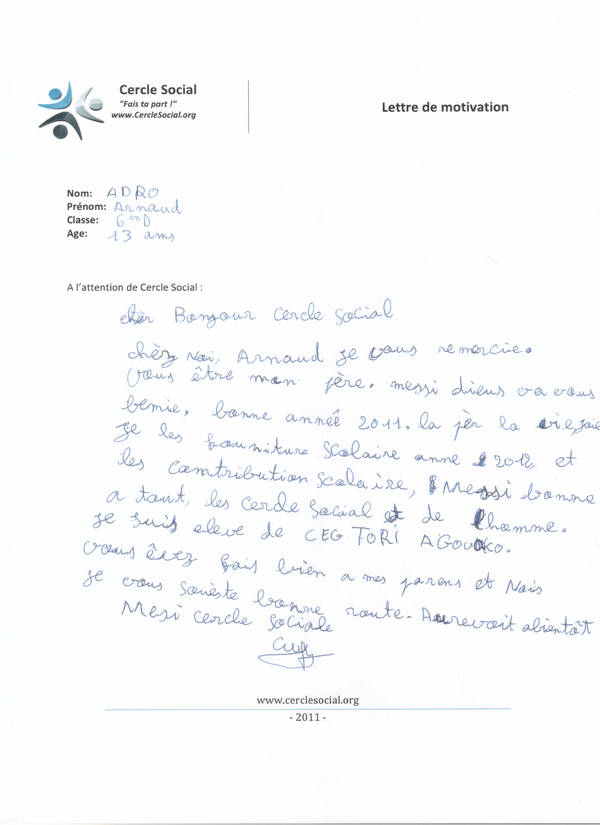 Cercle Social
"Fais ta part !"
www.CercleSocial.org
Lettre de motivation
Nom: ADRO
Prénom: Arnaud
Classe: 6en D
Age: 13 ams
A l'attention de Cercle Social :
cher Bonjour cercle social
chèr Noi, Arnaud je vous remercie.
Vous être mon père. messi dieus va vous
bemie. bonne année 2011. la pèr la
je les fourniture scolaire anne 2012 et
les comtribution scolaire, Messi bonne
a tout, les cercle social et de l'homme.
je suis eleve de CEG TORI AGOUAKO.
vous êtez fais bien a mes parens et Nois
je vous souèste bonne route. Aurevoit abientôt
Mesi cercle sociale
www.cerclesocial.org
- 2011 -